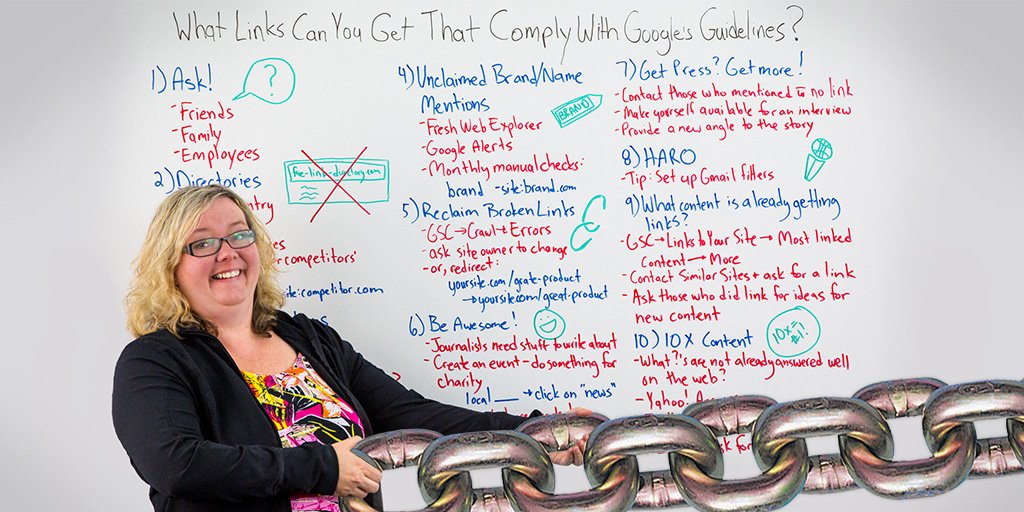 What Links Can You Get That Comply With Google's Guidelines?
1) Ask!
?
-Friends
-Family
-Employees
2) Directories
free-link-directory.com
competitors'
site:competitor.com
4) Unclaimed Brand/Name
Mentions
BRAND
-Fresh Web Explorer
-Google Alerts
-Monthly manual checks:
brand -site:brand.com
5) Reclaim Broken Links
-GSC→Crawl→Errors
-ask site owner to change
-or, redirect:
yoursite.com/grate-product
→yoursite.com/great-product
6) Be Awesome!
-Journalists need stuff to write about
-Create an event-do something for
charity
local ___ →click on "news"
7) Get Press? Get more!
-Contact those who mentioned w no link
-Make yourself available for an interview
-Provide a new angle to the story
8) HARO
-Tip: Set up Gmail filters
9) What content is already getting
links?
-GSC→Links to Your Site→Most linked
Content→More
-Contact Similar Sites + ask for a link
-Ask those who did link for ideas for
new content
10) 10X Content
-What ?'s are not already answered well
on the web?
-Yahoo!